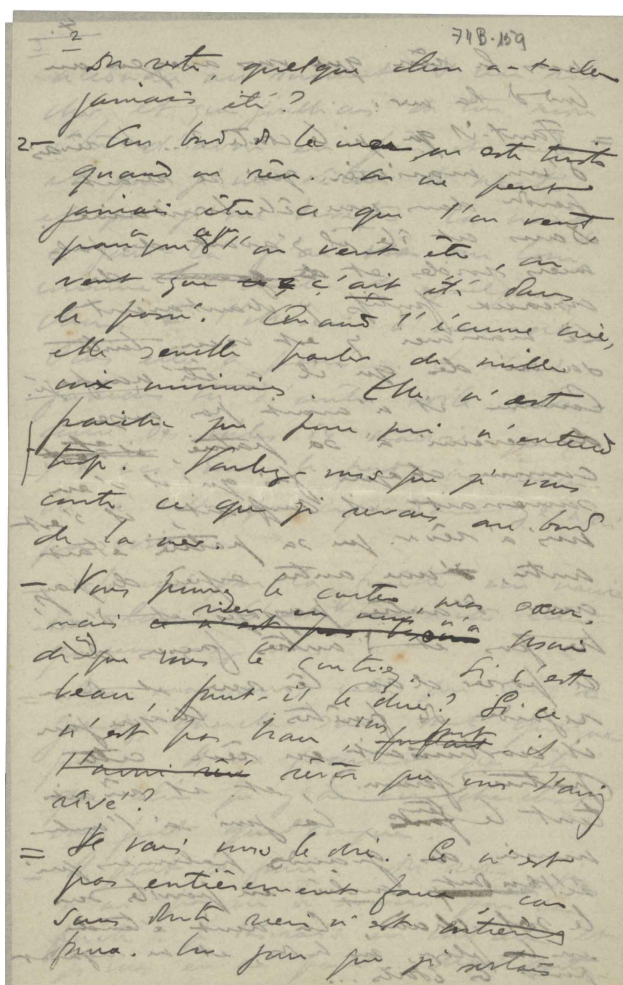 2 74B-159
Du reste, quelque chose a-t-elle
jamais été?
2- Au bord de la mer on est triste
quand on rêve. On ne peut
jamais être ce que l'on veut
parce que ce que l'on veut être, on
veut que ç'ait été dans
le passé. Quand l'écume crie,
elle semble parler de mille
voix minimes. Elle n'est
fraiche que pour qui n'entend
trop. Voulez-vous que je vous
conte ce que je revais au bord
de la mer.
- Vous pouvez le conter, ma sœur,
mais rien en nous n'a besoin
de que vous le contiez. Si c'est
beau, faut-il le dire? Si ce
n'est pas beau, faut il
l'avoir rêvé que vous l'ayez
rêvé?
= Je vais vous le dire. Ce n'est
pas entièrement faux car
sans doute rien n'est
faux. Un jour que je sortais